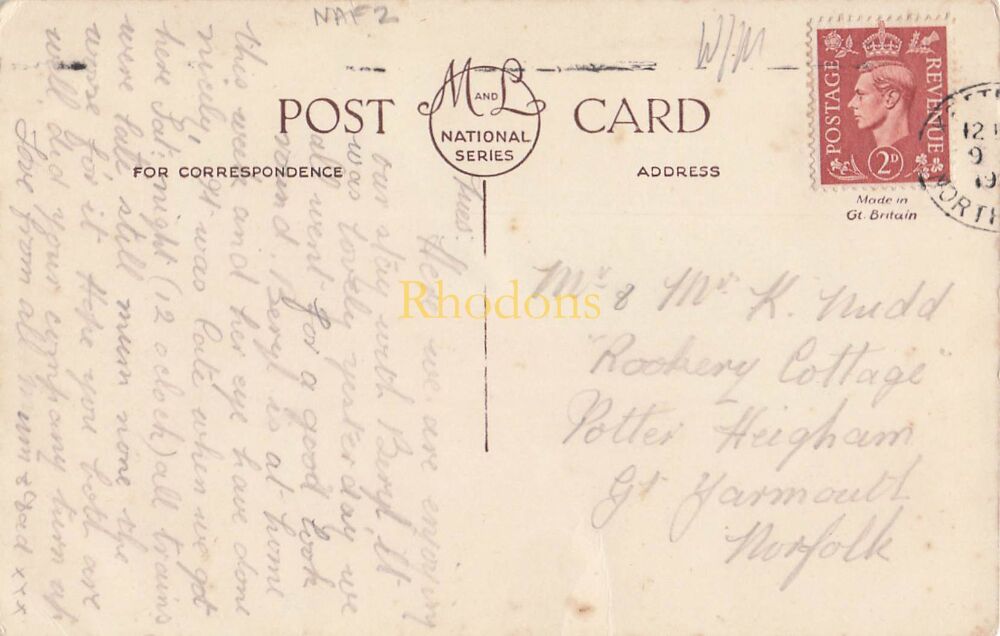 NAF2
W/M
POST CARD
M AND L
NATIONAL
SERIES
FOR CORRESPONDENCE
ADDRESS
POSTAGE
REVENUE
2D
Made in
Gt. Britain
12
9
19
NORTH
Rhodons
Tues:
Here we are enjoying
our stay with Beryl. It
was lovely yesterday we
all went for a good look
round. Beryl is at home
this week and her eye have done
nicely, it was late when we got
here Sat: night (12 oclock) all trains
were late still mum none the
worse for it Hope you both are
well, did your company turn up
Love from all Mum & Dad xxx
Mr & Mrs K. Nudd
"Rookery Cottage"
Potter Heigham
Gt Yarmouth
Norfolk